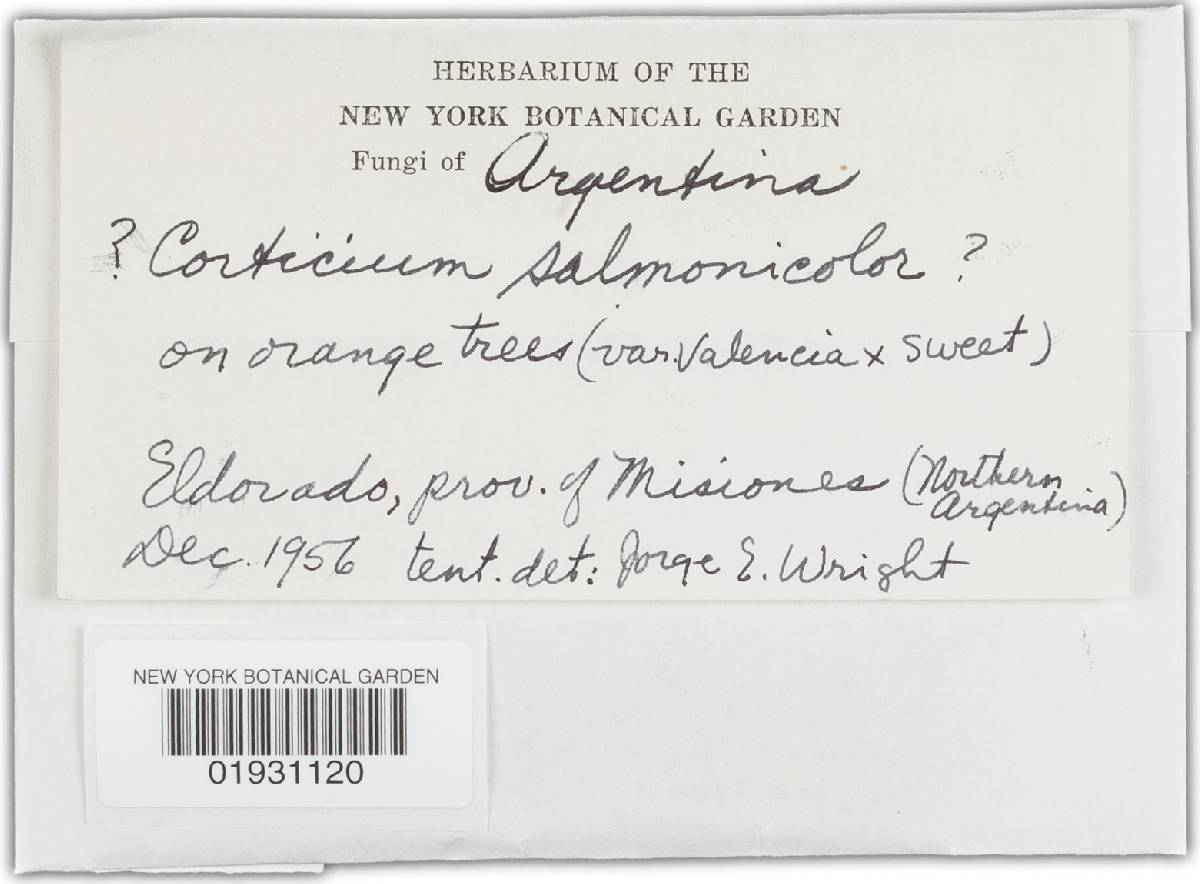 HERBARIUM OF THE
NEW YORK BOTANICAL GARDEN
Fungi of Argentina
? Corticium salmonicolor ?
on orange trees (var. Valencia x sweet)
Eldorado, prov. of Misiones (Northern
Argentina)
Dec. 1956 tent. det: Jorge E. Wright
NEW YORK BOTANICAL GARDEN
01931120